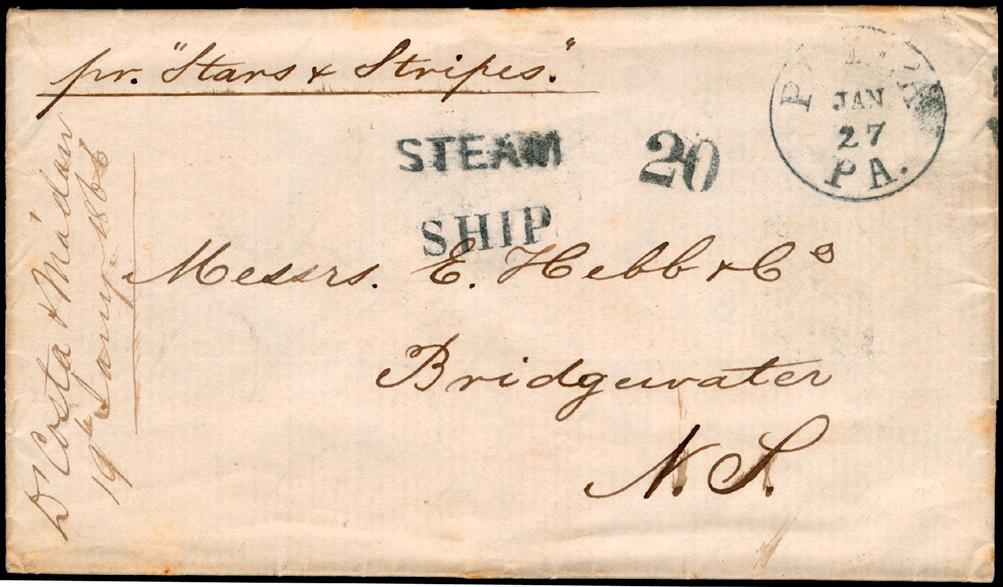 pr. "Stars & Stripes."
JAN
27
PA.
STEAM
SHIP
20
Messrs. E. Hebb & Co
Bridgewater
N. S.
D'Costa & Máduro
19th Jany 1866